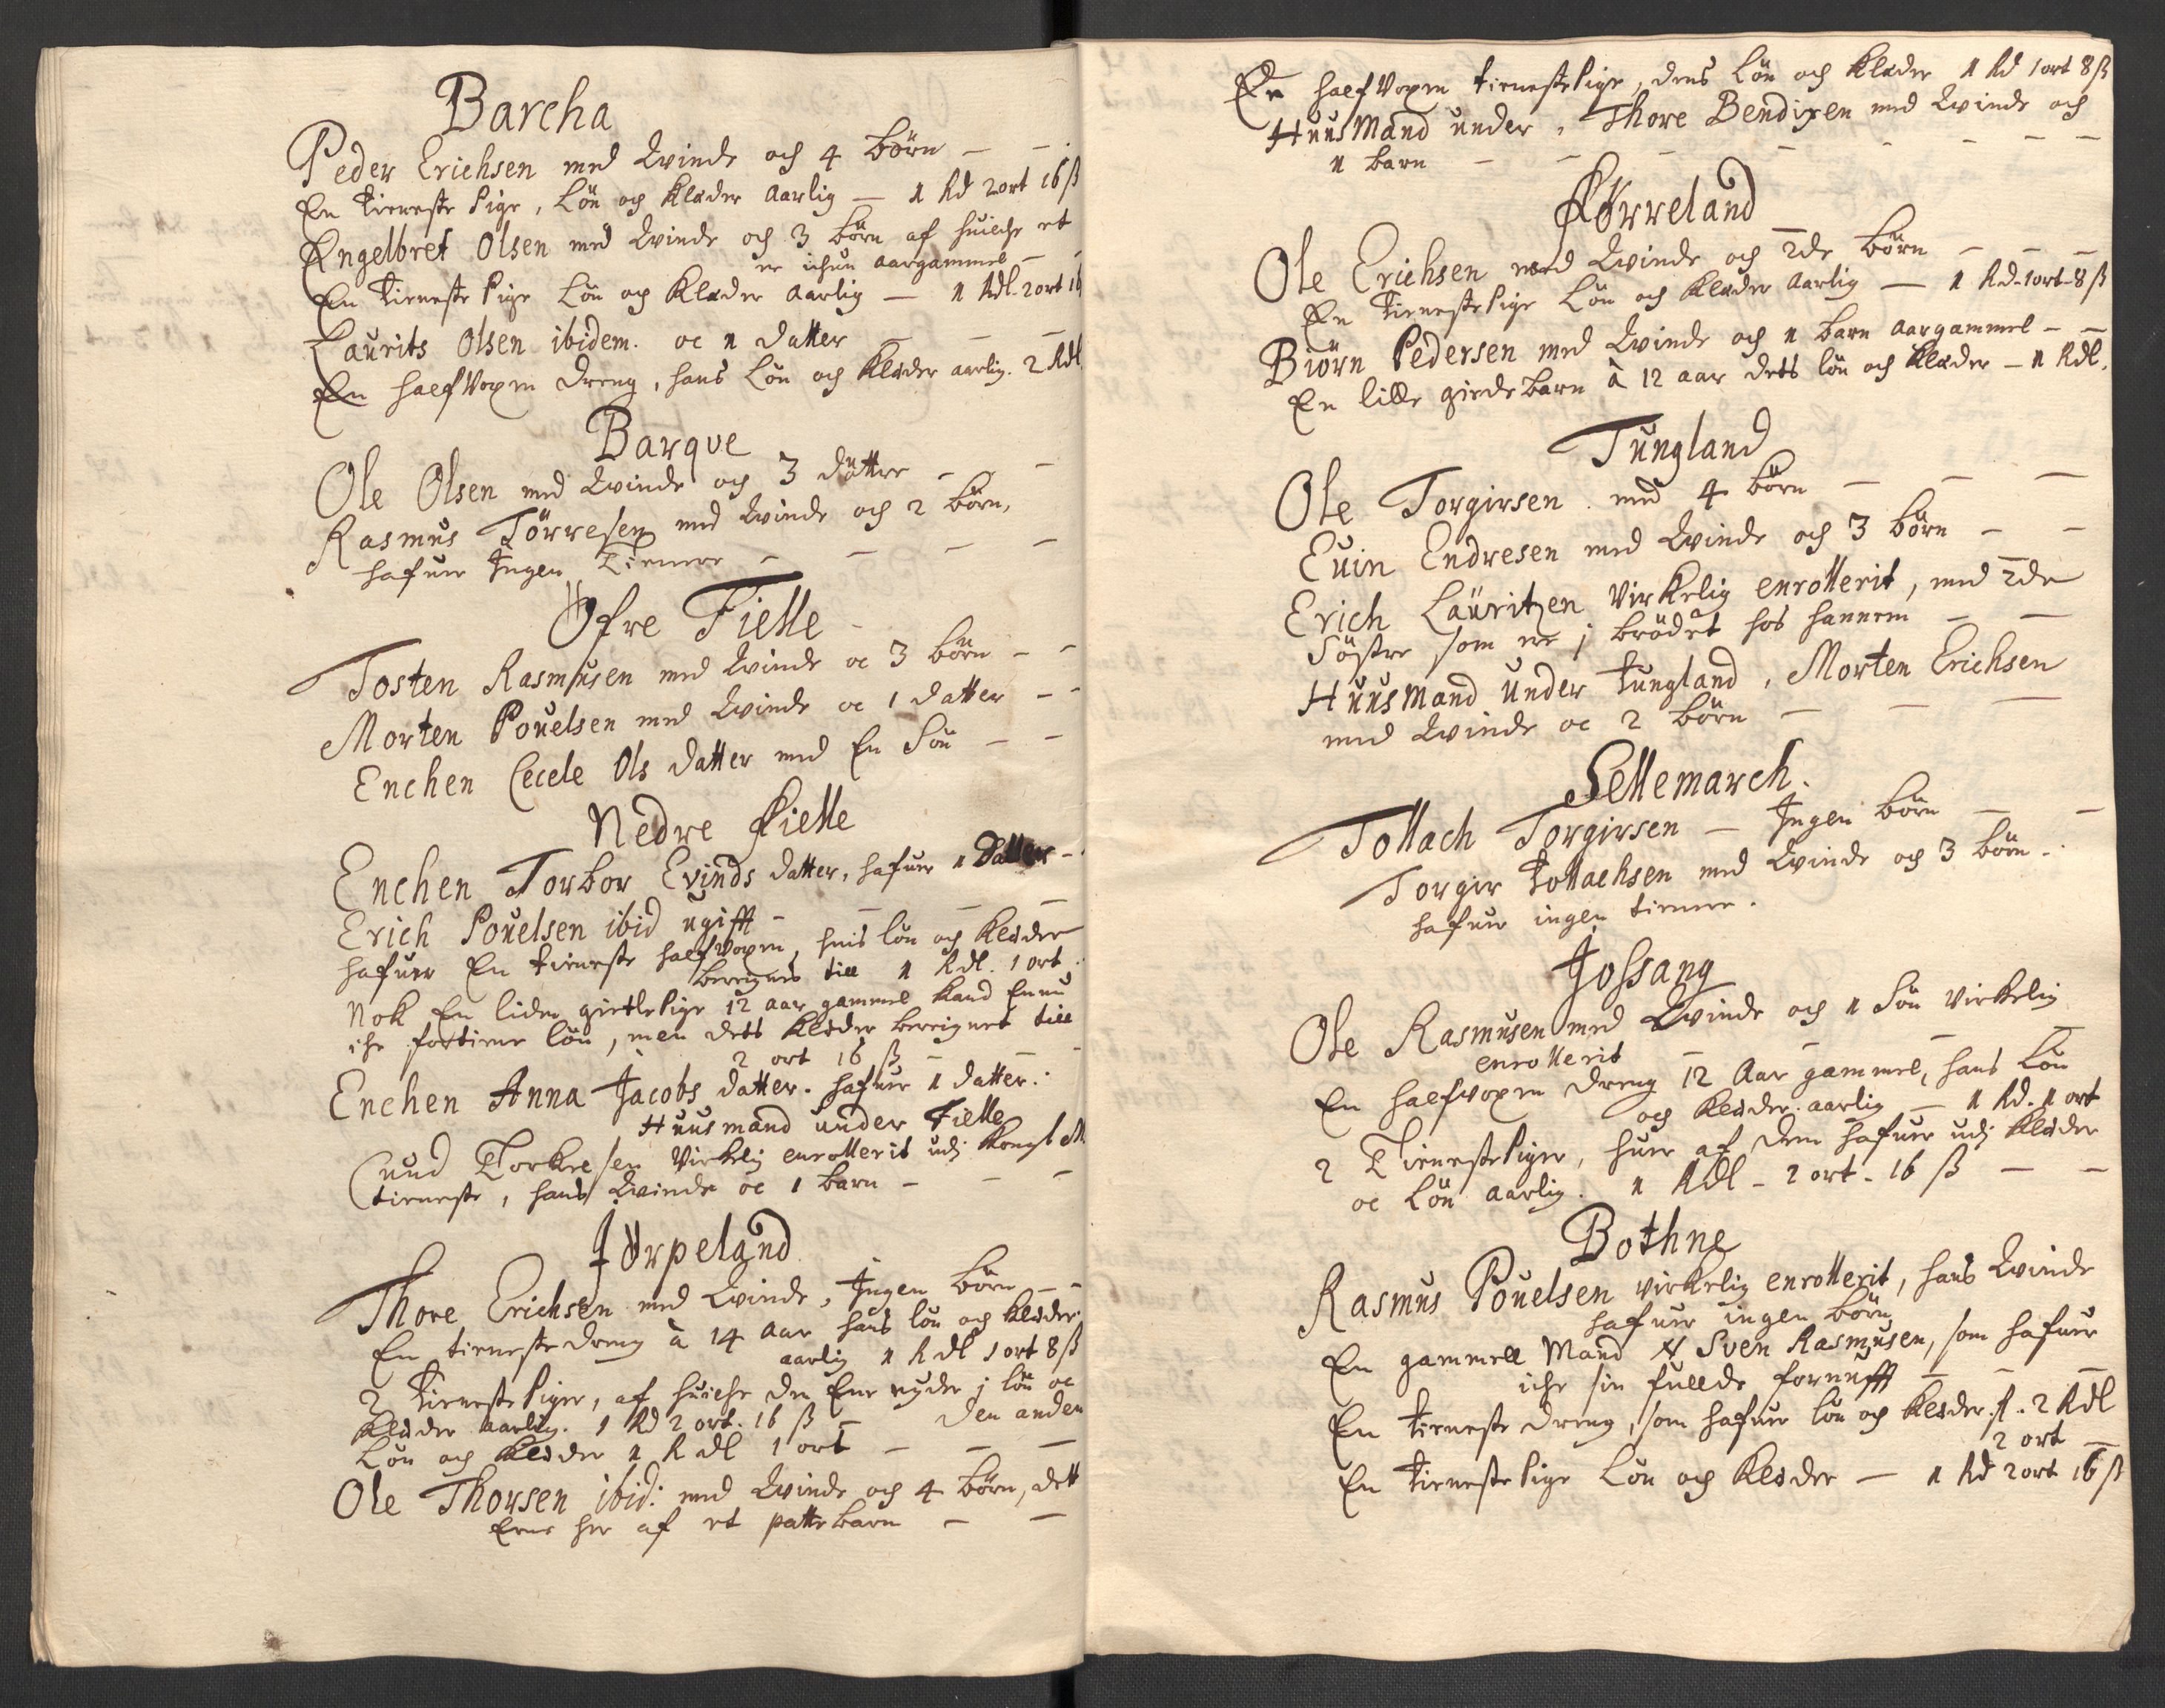 Barcha
Peder Erichsen med Qvinde och 4 børn — —
En Tieneste Pige, Løn och Klæder Aarlig — 1 Rd 2 ort 16 ß
Engelbret Olsen med Qvinde och 3 børn af huilche et
er ichun aargammel — —
En Tieneste Pige Løn och Klæder Aarlig — 1 Rdl. 2 ort 16
Laurits Olsen ibidem. oc 1 datter — — —
En halfVoxen dreng, hans Løn och Klæder aarlig. 2 Rdl.
Barque
Ole Olsen med Qvinde och 3 døttre — —
Rasmus Törresen med Qvinde och 2 børn,
hafuer Ingen Tienere — — — —
Öfre Fielle
Tosten Rasmusen med Qvinde oc 3 børn — —
Morten Pouelsen med Qvinde oc 1 datter — —
Enchen Cecele Ols datter med En Søn — —
Nedre Fielle
Enchen Torbor Evinds datter, hafuer 1 Datter —
Erich Pouelsen ibid ugifft — — — —
hafuer En tieneste halfvoxen, huis løn och Klæder
beregnes till 1 Rdl. 1 ort
Nok En liden giettePige 12 aar gammel kand Ennu
iche fortiene løn, men dets Klæder beregnet till
2 ort 16 ß — — —
Enchen Anna Jacobs datter. hafuer 1 datter.
Huusmand under Fielle
Cnud Torkresen Virkelig enrollerit udj Kongl M
tieneste, hans Qvinde oc 1 barn — — —
Jörpeland
Thore Erichsen med Qvinde, Ingen børn — —
En tieneste dreng à 14 Aar hans løn och Klæder
aarlig 1 Rdl 1 ort 8 ß
2 Tieneste Piger, af huilche den Ene nyder j løn oc
Klæder aarlig. 1 Rd 2 ort. 16 ß — den anden
Løn och Klæder 1 Rdl 1 ort — — —
Ole Thorsen ibid: med Qvinde och 4 børn, dett
Ene her af et patte barn — —
En halfVoxen tienestePige, dens Løn och Klæder 1 Rd 1 ort 8 ß
HuusMand under, Thore Bendixen med Qvinde och
1 barn — — — — — — —
Körreland
Ole Erichsen med Qvinde och 2de børn — — —
En TienestePige Løn och Klæder Aarlig — 1 Rd. 1 ort. 8 ß
Biörn Pedersen med Qvinde och 1 barn aargammel — —
En lille giedebarn à 12 aar dets løn och Klæder — 1 Rdl.
Tungland
Ole Torgirsen. med 4 børn — — —
Euin Endresen med Qvinde och 3 børn — —
Erich Lauritzen Virkelig enrollerit, med 2de
Søstre som er j brødet hos hannem — —
HuusMand under Tungland, Morten Erichsen
med Qvinde oc 2 børn — — —
Sellemarch.
Tollach Torgirsen — Ingen børn — —
Torgir Tollachsen med Qvinde och 3 børn.
hafuer ingen tienere.
Jossang
Ole Rasmusen med Qvinde och 1 Søn virkelig
enrollerit — — — —
En halfvoxen dreng 12 Aar gammel, hans Løn
och Klæder aarlig — 1 Rd. 1 ort
2 TienestePiger, huer af dem hafuer udj Klæder
oc Løn aarlig. 1 Rdl — 2 ort. 16 ß — —
Bothne
Rasmus Pouelsen virkelig enrollerit, hans Qvinde
hafuer ingen børn
En gammell Mand N Sven Rasmusen, som hafuer
iche sin fullde fornufft — — —
En tieneste dreng, som hafuer løn och Klæder. 2 Rdl
2 ort —
En TienestePige Løn och Klæder — 1 Rd 2 ort 16 ß